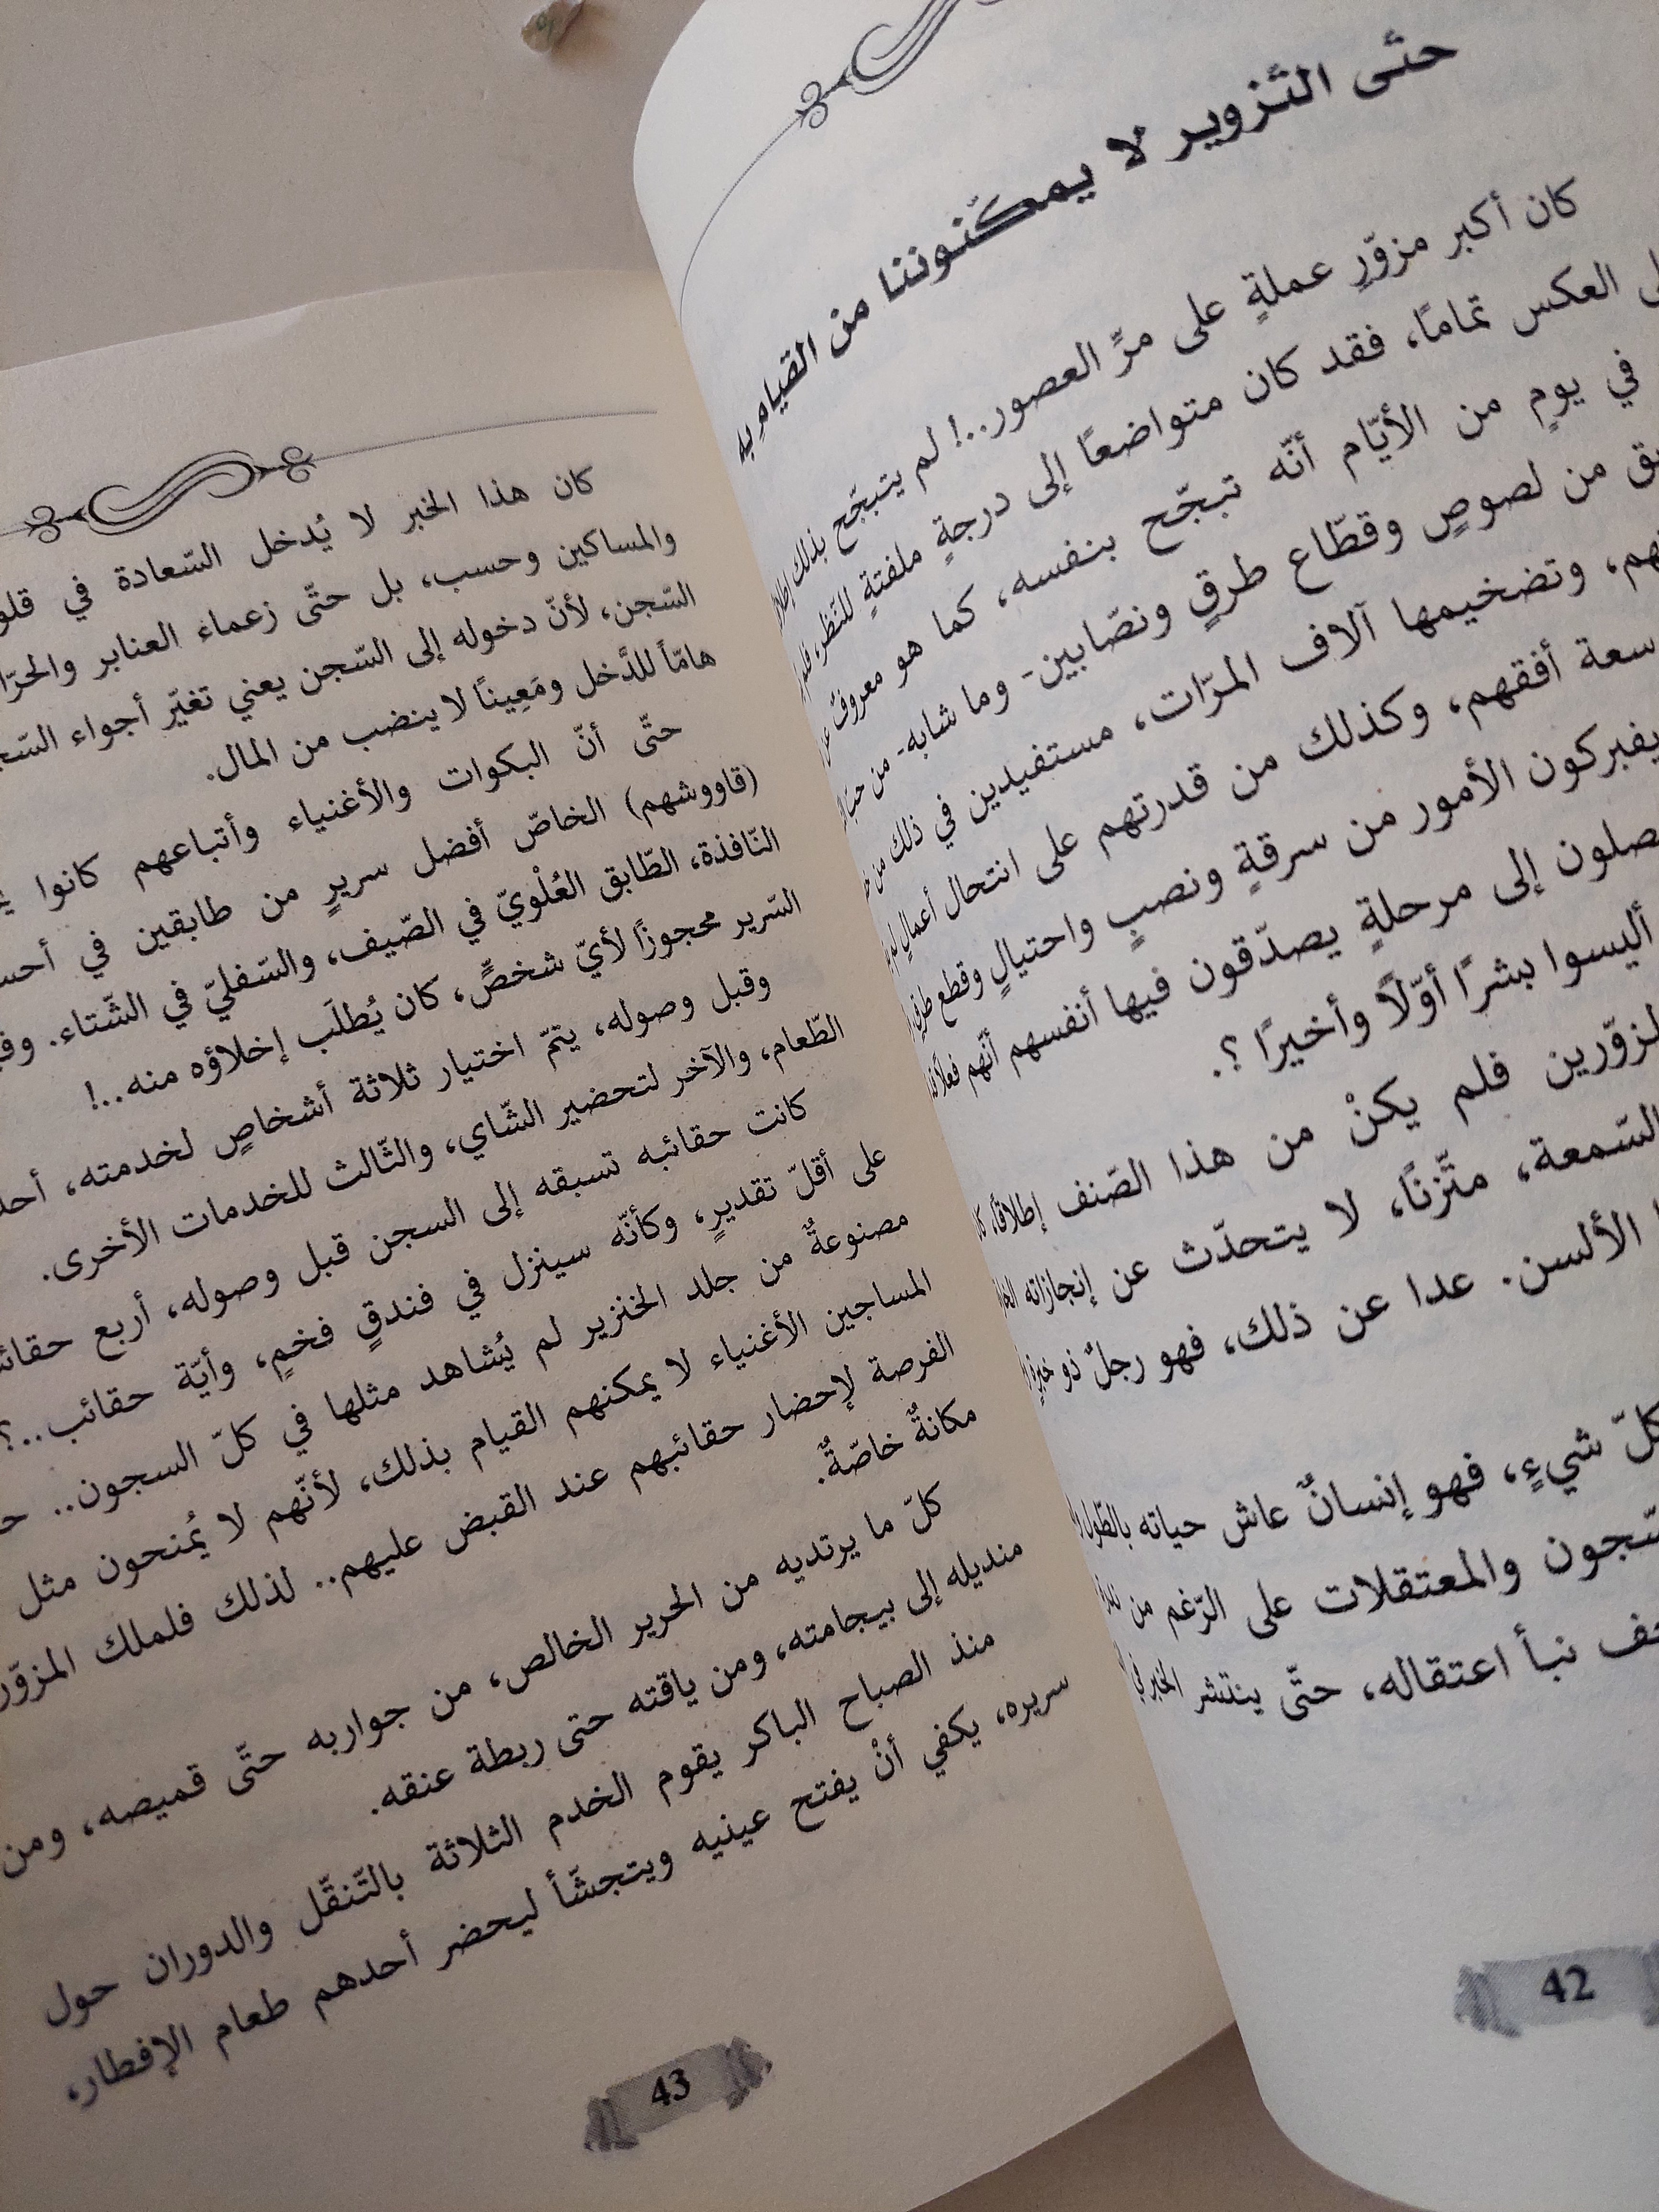 حتّى التّزوير لا يمكّنوننا من القيام به
كان أكبر مزوّرٍ عملةٍ على مرِّ العصور..! لم يتبجّح بذلك
العكس تمامًا، فقد كان متواضعًا إلى درجةٍ ملفتةٍ للنّظر،
في يومٍ من الأيّام أنّه تبجّح بنفسه، كما هو معروفٌ
من لصوصٍ وقطّاع طرقٍ ونصّابين- وما شابه- من
وتضخيمها آلاف المرّات، مستفيدين في ذلك من
سعة أفقهم، وكذلك من قدرتهم على انتحال أعمالٍ
يفبركون الأمور من سرقةٍ ونصبٍ واحتيالٍ وقطع طرقٍ
إلى مرحلةٍ يصدّقون فيها أنفسهم أنّهم فعلًا
أليسوا بشرًا أوّلًا وأخيرًا ؟.
فلم يكنْ من هذا الصّنف إطلاقًا،
السّمعة، متّزنًا، لا يتحدّث عن إنجازاته
الألسن. عدا عن ذلك، فهو رجلٌ ذو
كلّ شيءٍ، فهو إنسانٌ عاش حياته بالطّول
والمعتقلات على الرّغم من
نبأ اعتقاله، حتّى ينتشر الخبر في
42
كان هذا الخبر لا يُدخل السّعادة في
والمساكين وحسب، بل حتّى زعماء العنابر
السّجن، لأنّ دخوله إلى السّجن يعني تغيّر أجواء
هامًّا للدَّخل ومَعِينًا لا ينضب من المال.
حتّى أنّ البكوات والأغنياء وأتباعهم كانوا
(قاووشهم) الخاصّ أفضل سريرٍ من طابقين في
النّافذة، الطّابق العُلْويّ في الصّيف، والسّفليّ في الشّتاء.
السّرير محجوزًا لأيّ شخصٍّ، كان يُطلَب إخلاؤه منه..!
وقبل وصوله، يتمّ اختيار ثلاثة أشخاصٍ لخدمته،
الطّعام، والآخر لتحضير الشّاي، والثّالث للخدمات الأخرى.
كانت حقائبه تسبقه إلى السجن قبل وصوله، أربع
على أقلّ تقديرٍ، وكأنّه سينزل في فندقٍ فخمٍ، وأيّة حقائب..؟
مصنوعةٌ من جلد الخنزير لم يُشاهد مثلها في كلّ السجون..
المساجين الأغنياء لا يمكنهم القيام بذلك، لأنّهم لا يُمنحون مثل
الفرصة لإحضار حقائبهم عند القبض عليهم.. لذلك فلملك
مكانةٌ خاصّةٌ.
كلّ ما يرتديه من الحرير الخالص، من جواربه حتّى قميصه، ومن
منديله إلى بيجامته، ومن ياقته حتى ربطة عنقه.
منذ الصباح الباكر يقوم الخدم الثلاثة بالتّنقّل والدوران حول
سريره، يكفي أنْ يفتح عينيه ويتجشّأ ليحضر أحدهم طعام الإفطار،
43